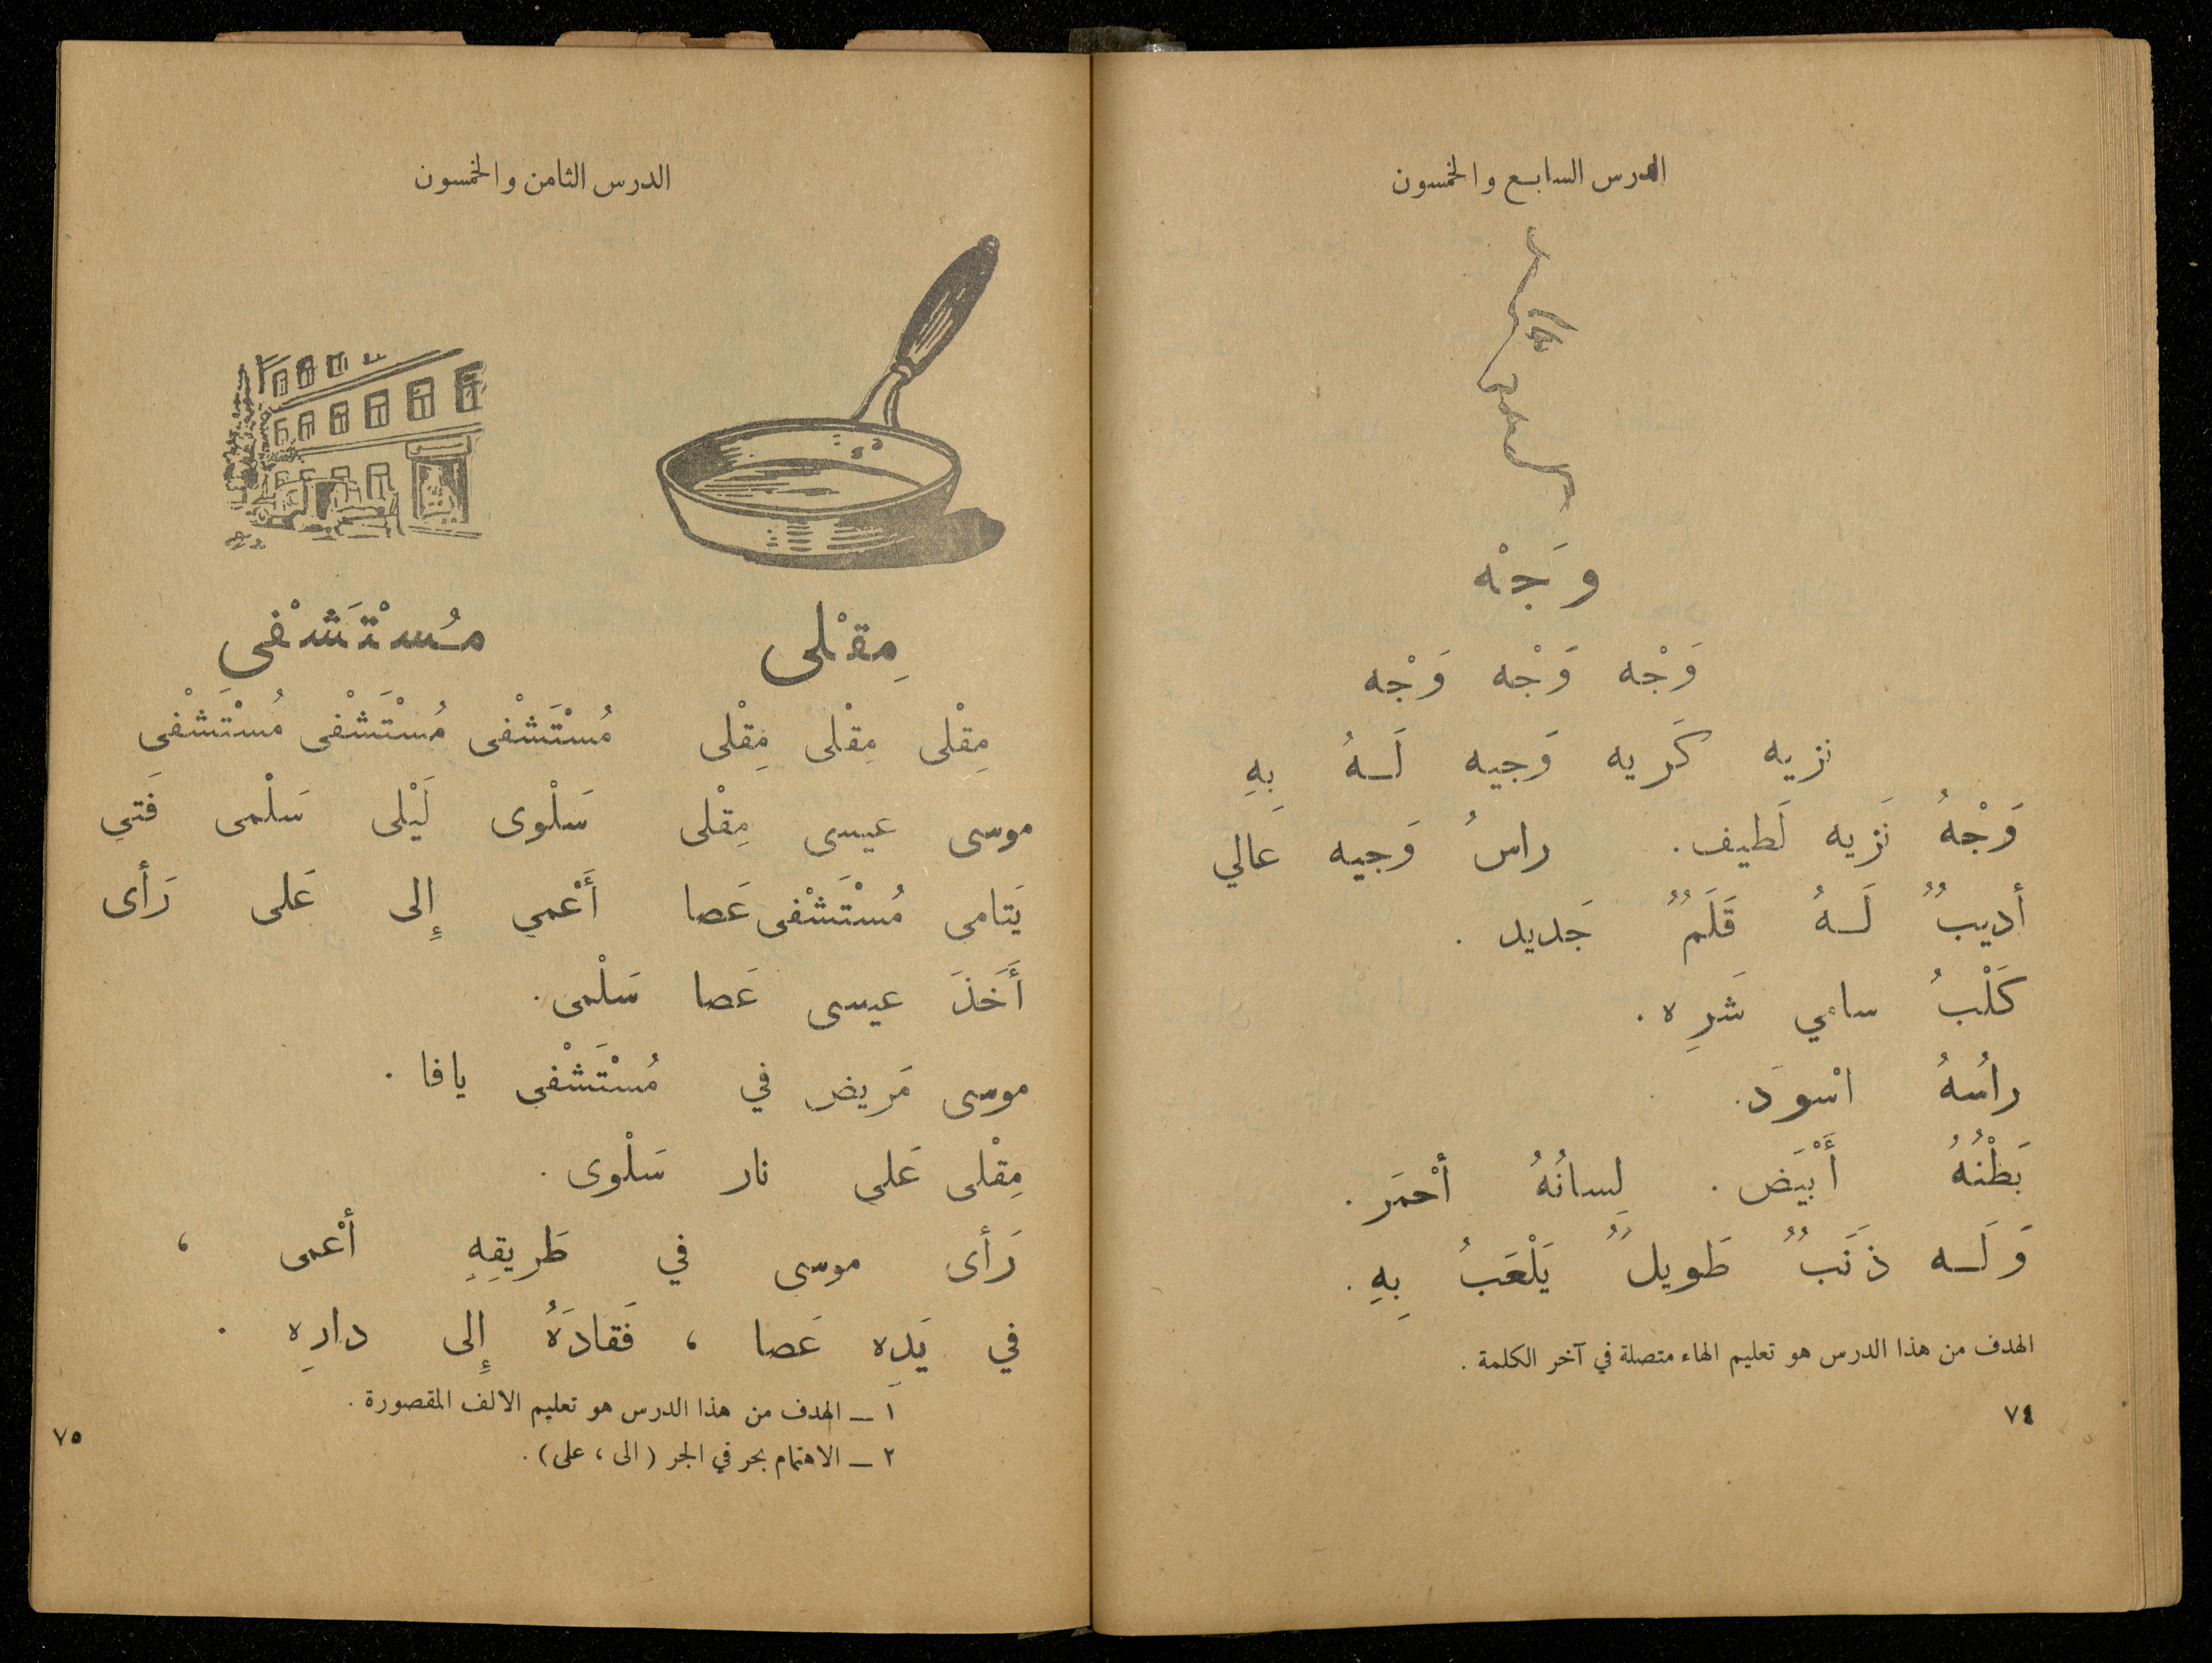 الدرس السابع والخمسون
وَجْه
وَجْه وَجْه وَجْه
نزيه كَريه وَجيه لَهُ بِهِ
وَجْهُ نَزيه لَطيف. راسُ وَجيه عالي
أديبٌ لَهُ قَلَمٌ جَديد .
كَلْبُ سامي شَرِه .
راسُهُ اسْوَد.
بَطْنُهُ أَبْيَض . لِسانُهُ أحْمَر .
وَلَه ذَنَبٌ طَويلٌ يَلْعَبُ بِهِ .
الهدف من هذا الدرس هو تعليم الهاء متصلة في آخر الكلمة .
٧٤
الدرس الثامن والخمسون
مِقْلى مُسْتَشْفى
مِقْلى مِقْلى مِقْلى مُسْتَشْفى مُسْتَشْفى مُسْتَشْفى
موسى عيسى مِقْلى سَلْوى لَيْلى سَلْمى فَتى
يَتامى مُسْتَشْفى عَصا أَعْمى إِلى عَلى رَأى
أَخَذَ عيسى عَصا سَلْمى.
موسى مَريض في مُسْتَشْفى يافا .
مِقْلى عَلى نار سَلْوى .
رَأى موسى في طَريقِهِ أعْمى ،
في يَدِه عَصا ، فَقادَهُ إِلى دارِه .
١ ـ الهدف من هذا الدرس هو تعليم الالف المقصورة .
٢ ـ الاهتمام بحرفي الجر (الى ، على) .
٧٥